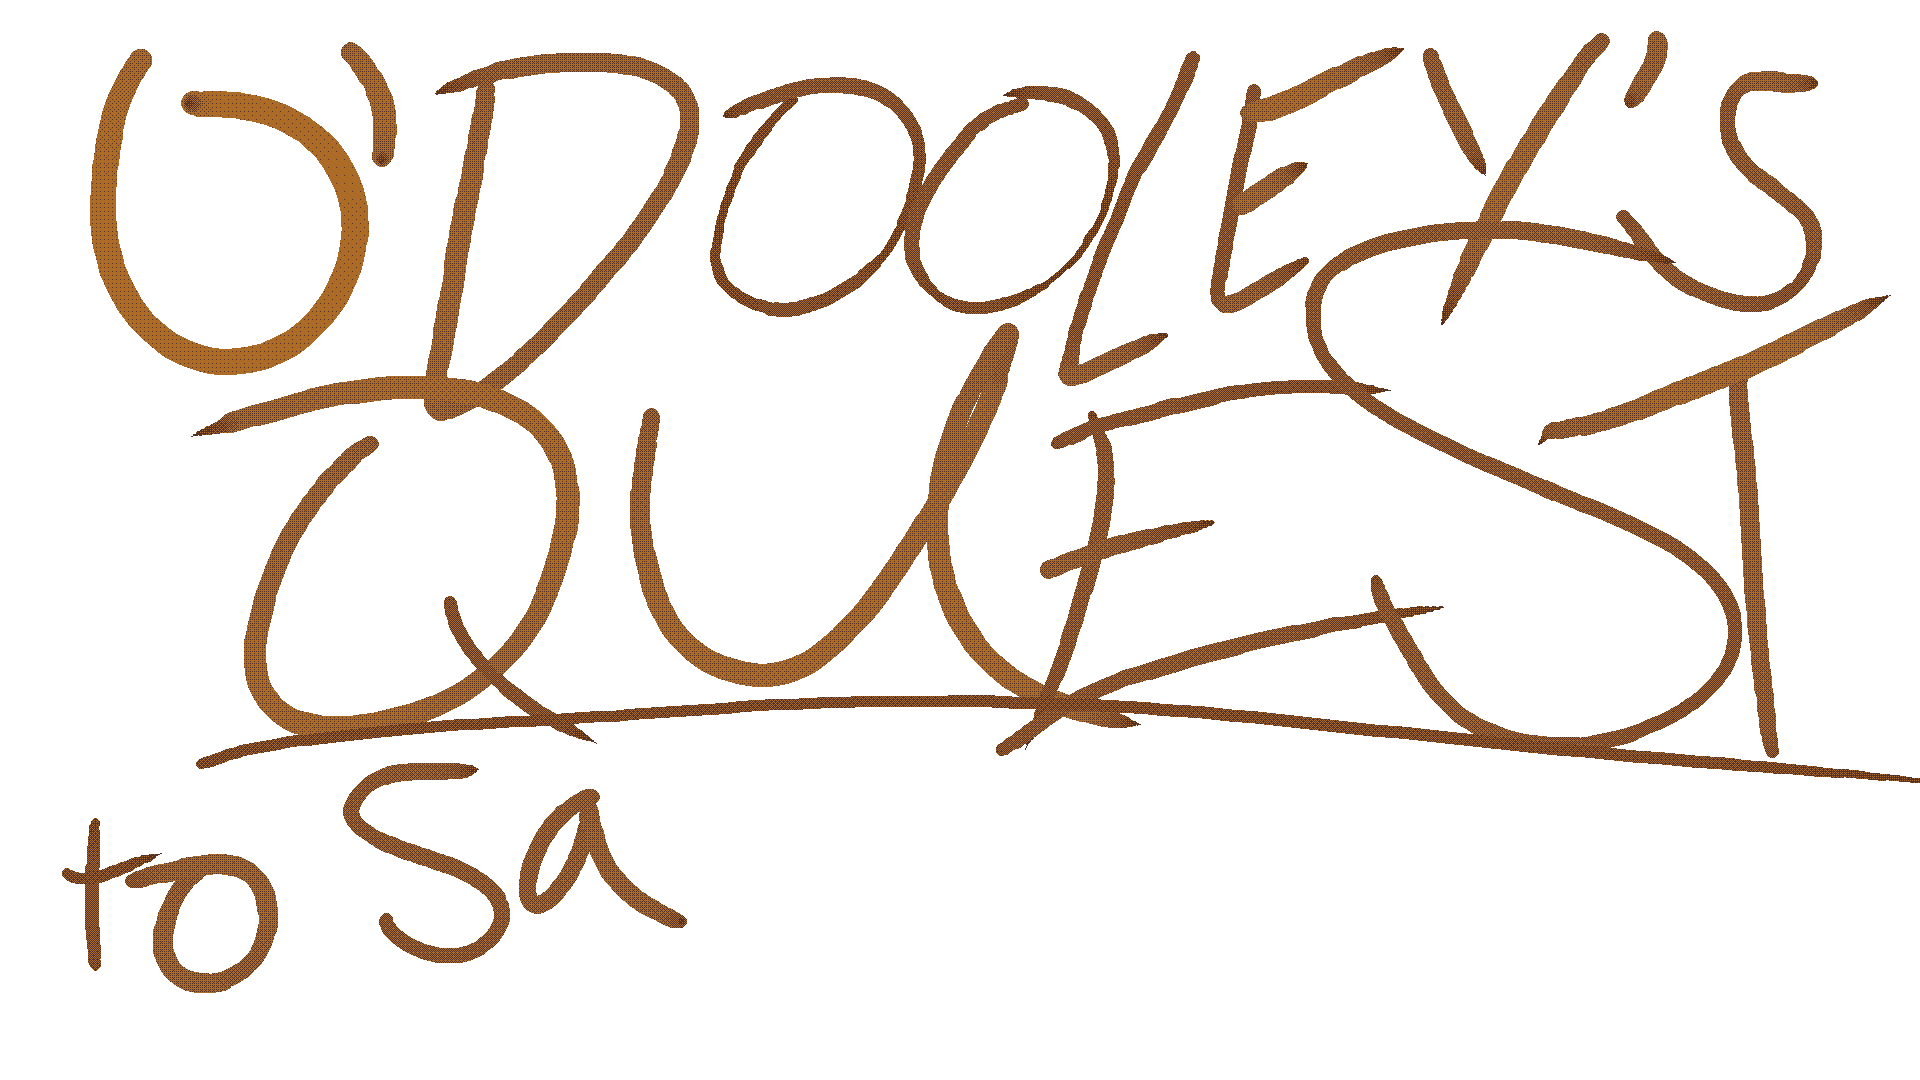 O'DOOLEY'S
QUEST
to Sa